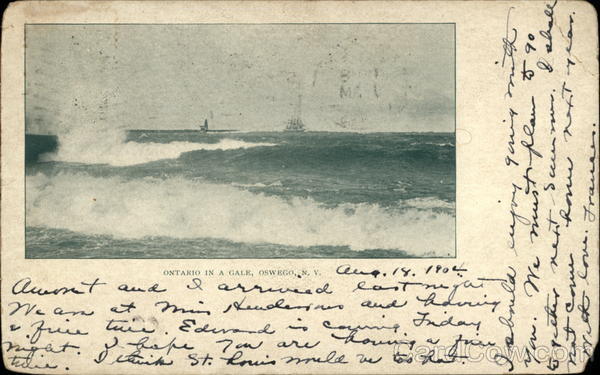 ONTARIO IN A GALE, OSWEGO, N. Y.
Aug. 14, 1904
and I arrived last night
We are at Miss Hendersons and having
a fine time. Edward is coming Friday
night. I hope you are having a fine
time. I think St. Louis would be to hot.
I should enjoy going with
you. We must plan to go
together next Summer. I shall
not come home next year.
With love. Frances.
CardCow.com